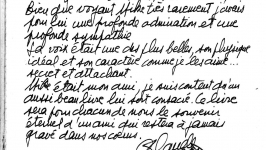 Bien que voyant Mike très rarement j'avais
pour lui une profonde admiration et une
profonde sympathie
Sa voix était une des plus belles, son physique
idéal et son caractère comme je les aime...
secret et attachant.
Mike était mon ami, je suis content qu'un
aussi beau livre lui soit consacré. Ce livre
sera pour chacun de nous le souvenir
éternel d'un ami qui restera à jamais
gravé dans nos cœurs